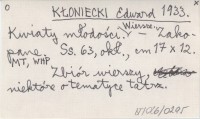 KŁONIECKI Edward 1933.
Kwiaty młodości. Wiersze. – Zako-
pane, Ss. 63, okł., cm 17 x 12.
MT, WHP
Zbiór wierszy,
niektóre o tematyce tatrz.